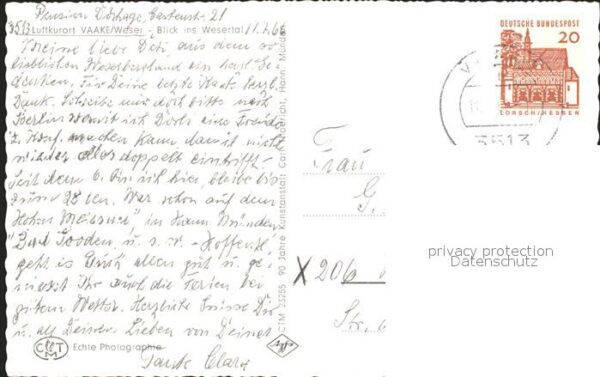 Pension Dörhage, Gartenstr. 21
3513 Luftkurort VAAKE/Weser - Blick ins Wesertal 11.7.66
Meine liebe Doti aus dem so
lieblichen Weserbergland ein herzl. Ge-
denken. Für Deine letzte Karte herzl.
Dank. Schreibe mir doch bitte nach
Berlin womit ich Doris eine Freude
z. machen kann, damit nicht
wieder alles doppelt eintrifft.
Seit dem 6. bin ich hier, bleibe bis
zum 28ten. War schon auf dem
Hohen Meissner in Hann. Münden
Bad Sooden, u. s. w. - Hoffentl.
geht es Euch allen gut u. ge-
niesst Ihr auch die Ferien bei
gutem Wetter. Herzliche Grüsse Dir
u. all Deinen Lieben von Deiner
Tante Clara
CTM Echte Photographie
CTM 33255 90 Jahre Kunstanstalt Carl Thoericht, Hann. Münden
Agfa
DEUTSCHE BUNDESPOST
20
LORSCH/HESSEN
3513
Frau
G.
X 206
Str. 6
privacy protection
Datenschutz